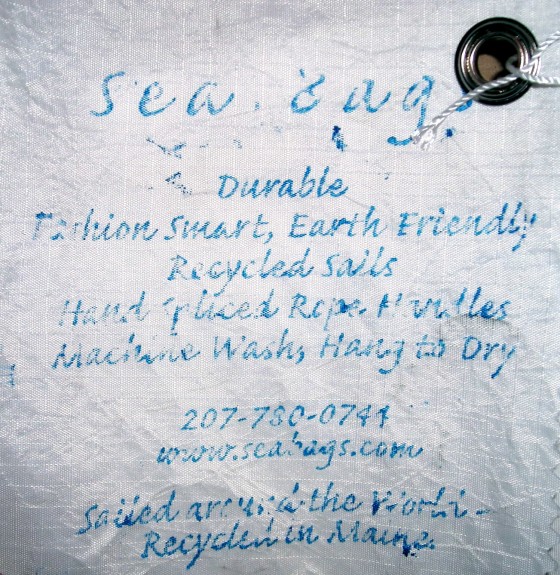 Sea Bags
Durable
Fashion Smart, Earth Friendly
Recycled Sails
Hand Spliced Rope Handles
Machine Wash, Hang to Dry
207-780-0744
www.seabags.com
Sailed around the World -
Recycled in Maine.